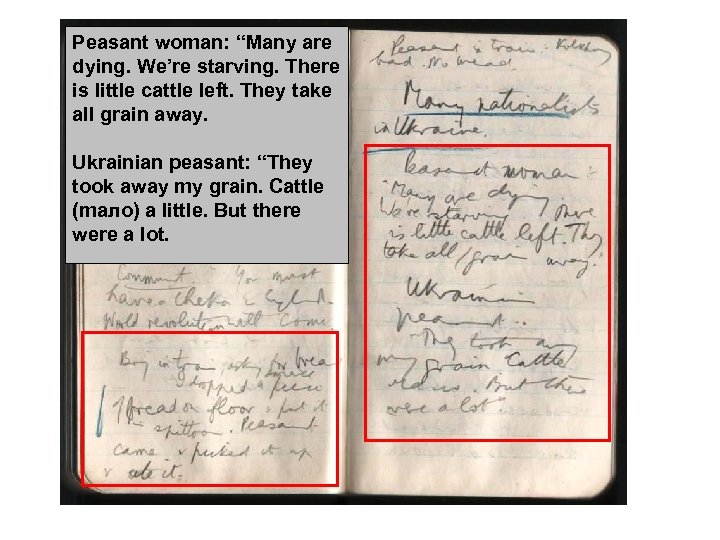 Peasant woman: “Many are
dying. We’re starving. There
is little cattle left. They take
all grain away.
Ukrainian peasant: “They
took away my grain. Cattle
(mало) a little. But there
were a lot.
Communist: "You must
have a Cheka in England
World revolution will come.
Boy in train, asking for bread
dropped a piece
of bread on floor & put it
in spittoon. Peasant
came & picked it up
& ate it.
Peasant in train:
bad. No bread.
Many nationalists
in Ukraine.
Peasant woman:-
"Many are dying.
We're starving. There
is little cattle left. They
take all grain away."
Ukrainian
peasant:
"They took away
my grain Cattle
But there
were a lot".